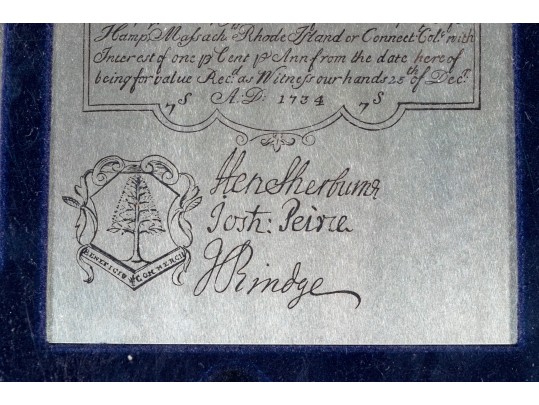 Hamp, Massachts Rhode Island or Connect: Colo: with
Interest of one ⅌ Cent ⅌ Ann from the date hereof
being for value Rec.d as Witness our hands 25th of Decr.
7S A.D: 1734 7S
Hen Sherburne
Josh: Peirce
J Rindge
BENEFICIO COMMERCII